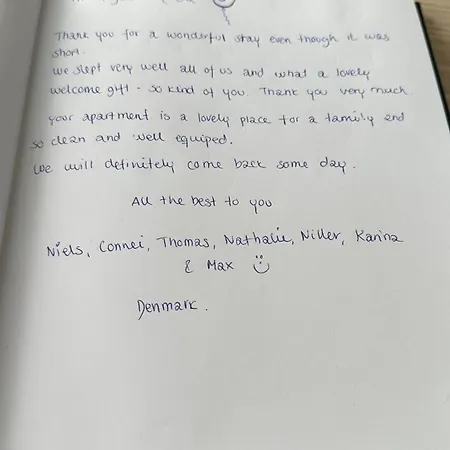 Thank you for a wonderful stay even though it was
short.
We slept very well all of us and what a lovely
welcome gift - so kind of you. Thank you very much.
Your apartment is a lovely place for a family and
so clean and well equiped.
We will definitely come back some day.
All the best to you
Niels, Connei, Thomas, Nathalie, Niller, Karina
& Max
Denmark.